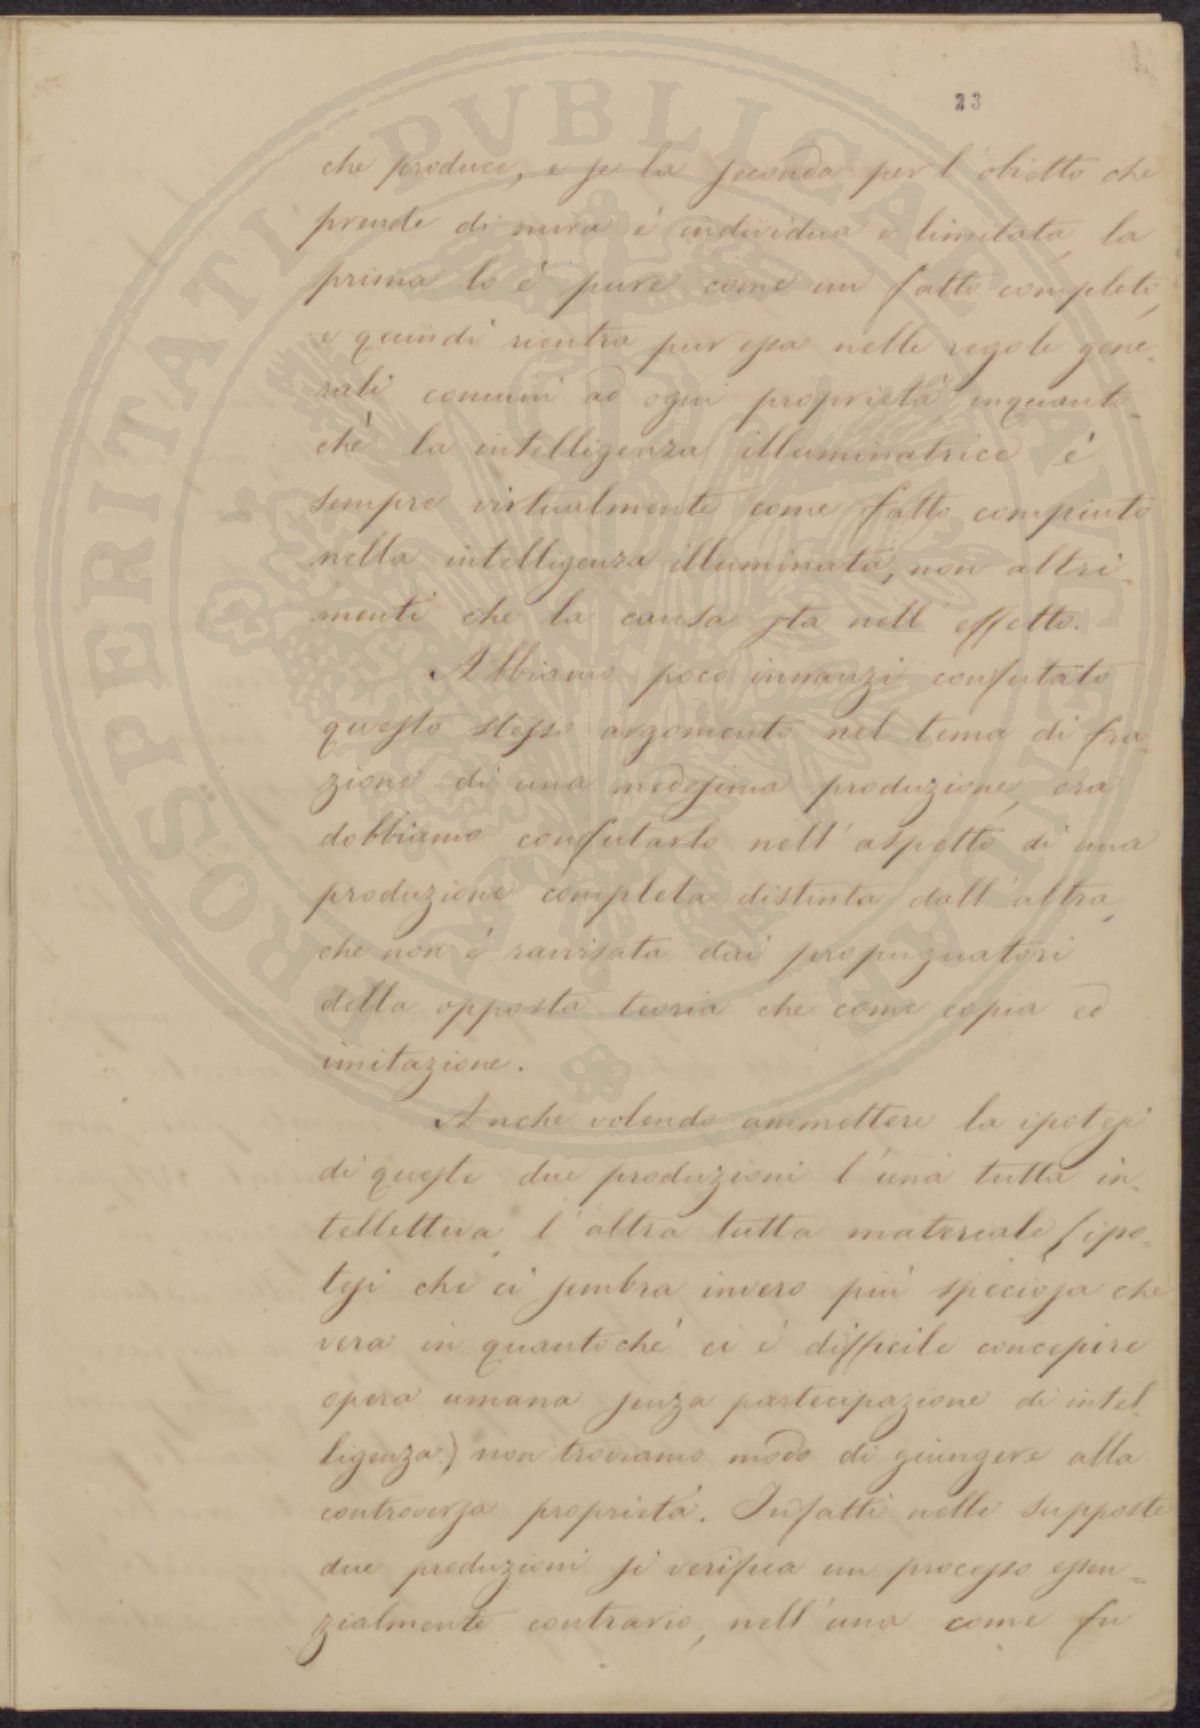 23
che produce, e se la seconda per l'obietto che
prende di mira è individua e limitata, la
prima lo è pure come un fatto completo,
e quindi rientra pur essa nelle regole gene-
rali comuni ad ogni proprietà inquanto-
chè la intelligenza illuminatrice è
sempre virtualmente come fatto compiuto
nella intelligenza illuminata, non altri-
menti che la causa sta nell'effetto.
Abbiamo poco innanzi confutato
questo stesso argomento nel tema di fra-
zione di una medesima produzione, ora
dobbiamo confutarlo nell'aspetto di una
produzione completa distinta dall'altra,
che non è ravvisata dai propugnatori
della opposta teoria che come copia ed
imitazione.
Anche volendo ammettere la ipotesi
di queste due produzioni l'una tutta in-
tellettiva, l'altra tutta materiale (ipo-
tesi che ci sembra invero più speciosa che
vera in quantochè ci è difficile concepire
opera umana senza partecipazione di intel-
ligenza) non troviamo modo di giungere alla
controversa proprietà. Infatti nelle supposte
due produzioni si verifica un processo essen-
zialmente contrario, nell'una come fu
PROSPERITATI PVBLICAE AVGENDAE